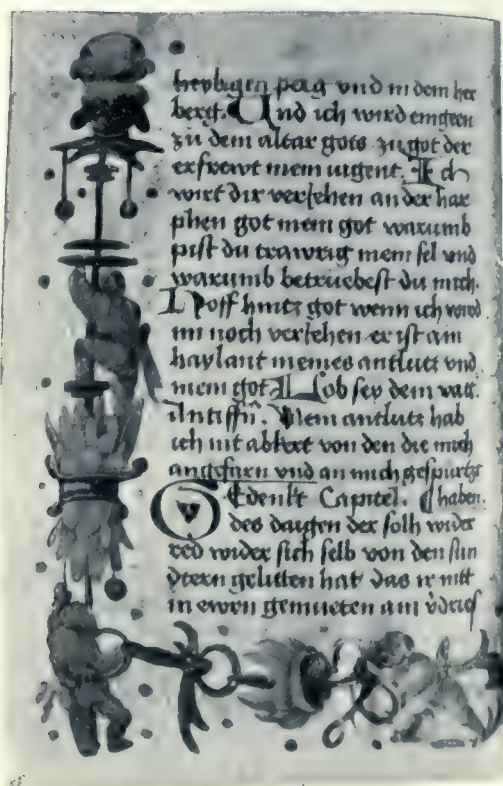 heyligen perg vnd in dem her
berg. Und ich wird eingeen
zü dem altar gots zu got der
erfrewt mein iugent. Ich
wirt dir veriehen an der har
phen got mein got warumb
pist du trawrig mein sel vnd
warumb betruebest du mich.
Hoff hintz got wenn ich wird
im noch veriehen er ist ain
haylant meines antlutz vnd
mein got. Lob sey dem vatt.
Antiffn̄. Mein antlutz hab
ich nit abkert von den die mich
angefaren vnd an mich gespurtzt
Gedenkt Capitel. haben.
des daugen der solh wider
red wider sich selb von den sun
dtern gelitten hat das ir nitt
in ewrn gemueten ain vdries